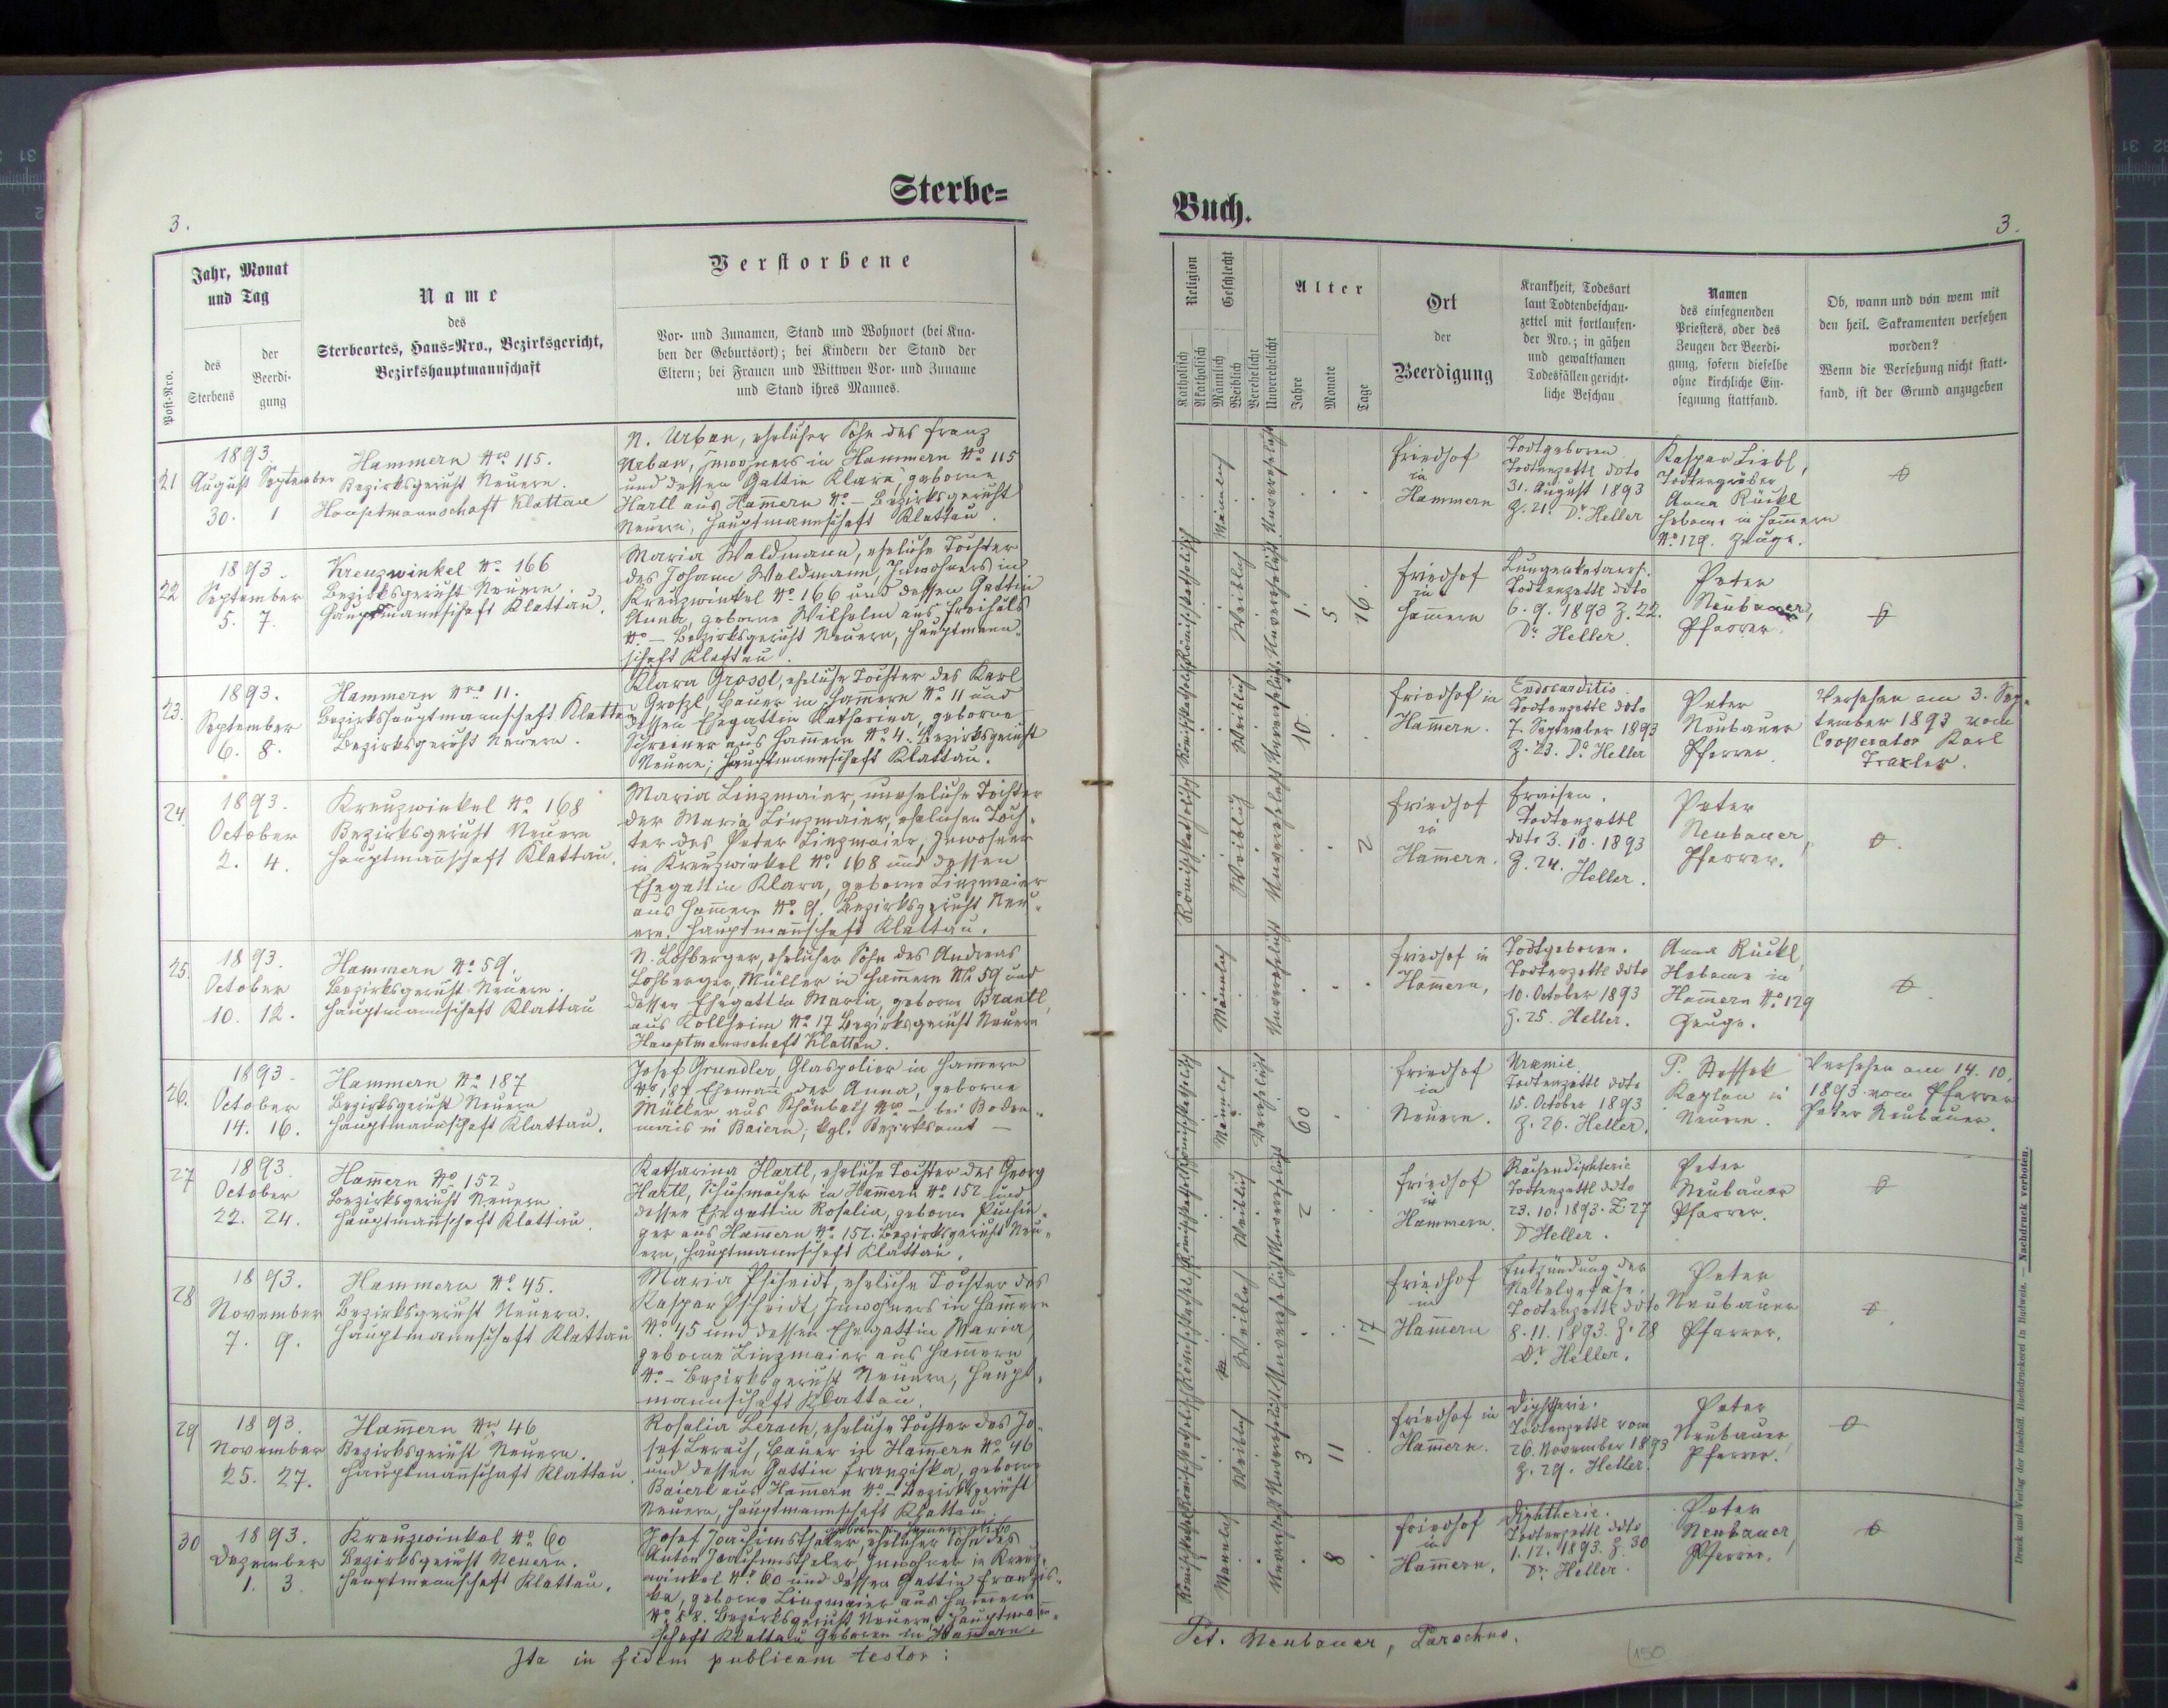 Sterbe=
3.
Jahr, Monat
und Tag
Post-Nro.
des
Sterbens
der
Beerdi-
gung
Name
des
Sterbeortes, Haus=Nro., Bezirksgericht,
Bezirkshauptmannschaft
Verstorbene
Vor- und Zunamen, Stand und Wohnort (bei Kna-
ben der Geburtsort); bei Kindern der Stand der
Eltern; bei Frauen und Wittwen Vor- und Zuname
und Stand ihres Mannes.
21
1893.
August September
30. 1
Hammern Nro 115.
Bezirksgericht Neuern.
Hauptmannschaft Klattau
N. Urban, ehelicher Sohn des Franz
Urban, Inwohners in Hammern No 115
und dessen Gattin Klara, geborne
Hartl aus Hammern No – Bezirksgericht
Neuern, Hauptmannschaft Klattau.
22
1893.
September
5. 7.
Kreuzwinkel No 166
Bezirksgericht Neuern.
Hauptmannschaft Klattau.
Maria Waldmann, eheliche Tochter
des Johann Waldmann, Inwohners in
Kreuzwinkel No 166 und dessen Gattin
Anna, geborne Wilhelm aus
No – Bezirksgericht Neuern, Hauptmann-
schaft Klattau.
23.
1893.
September
6. 8.
Hammern Nro 11.
Bezirkshauptmannschaft Klattau
Bezirksgericht Neuern.
Klara Grossl, eheliche Tochter des Karl
Groszl, Bauer in Hammern No 11 und
dessen Ehegattin Katharina, geborne
Schreiner aus Hammern No 4. Bezirksgericht
Neuern; Hauptmannschaft Klattau.
24.
1893.
October
2. 4.
Kreuzwinkel No 168
Bezirksgericht Neuern
Hauptmannschaft Klattau.
Maria Linzmaier, uneheliche Tochter
der Maria Linzmaier, ehelichen Toch-
ter des Peter Linzmaier, Inwohner
in Kreuzwinkel No 168 und dessen
Ehegattin Klara, geborne Linzmaier
aus Hammern No 9. Bezirksgericht Neu-
ern. Hauptmannschaft Klattau.
25.
1893.
October
10. 12.
Hammern No 59.
Bezirksgericht Neuern.
Hauptmannschaft Klattau
N. Lohberger, ehelicher Sohn des Andreas
Lohberger, Müller in Hammern No 59 und
dessen Ehegattin Maria, geborne Brantl,
aus Kollheim No 17 Bezirksgericht Neuern
Hauptmannschaft Klattau.
26.
1893.
October
14. 16.
Hammern No 187
Bezirksgericht Neuern
Hauptmannschaft Klattau.
Josef Grundler, Glaspolier in Hammern
No 187 Ehemann der Anna, geborne
Müller aus Schönbach No – bei Boden-
mais in Baiern; kgl. Bezirksamt –
27
1893.
October
22. 24.
Hammern No 152
Bezirksgericht Neuern
Hauptmannschaft Klattau.
Katharina Hartl, eheliche Tochter des Georg
Hartl, Schuhmacher in Hammern No 152 und
dessen Ehegattin Rosalia, geborne
ger aus Hammern No 152. Bezirksgericht Neu-
ern, Hauptmannschaft Klattau.
28
1893.
November
7. 9.
Hammern No 45.
Bezirksgericht Neuern.
Hauptmannschaft Klattau
Maria Pscheidt, eheliche Tochter des
Kaspar Pscheidt, Inwohners in Hammern
No 45 und dessen Ehegattin Maria,
geborne Linzmaier aus Hammern
No – Bezirksgericht Neuern, Haupt-
mannschaft Klattau.
29
1893.
November
25. 27.
Hammern Nro 46
Bezirksgericht Neuern.
Hauptmannschaft Klattau
Rosalia Lerach, eheliche Tochter des Jo-
sef Lerach, Bauer in Hammern No 46
und dessen Gattin Franziska, geborne
Baierl aus Hammern No – Bezirksgericht
Neuern, Hauptmannschaft Klattau
30
1893.
Dezember
1. 3.
Kreuzwinkel No 60
Bezirksgericht Neuern.
Hauptmannschaft Klattau.
Josef Joachimsthaler, ehelicher Sohn des
Anton Joachimsthaler, Inwohner in Kreuz-
winkel No 60 und dessen Gattin Franzis-
ka, geborne Linzmaier aus Hammern
No 88. Bezirksgericht Neuern, Hauptman-
schaft Klattau Geboren in Hammern.
Ita in fidem publicam testor:
Buch.
3.
Religion
Katholisch
Akatholisch
Geschlecht
Männlich
Weiblich
Verehelicht
Unverehelicht
Alter
Jahre
Monate
Tage
Ort
der
Beerdigung
Krankheit, Todesart
laut Todtenbeschau-
zettel mit fortlaufen-
der Nro.; in gähen
und gewaltsamen
Todesfällen gericht-
liche Beschau
Namen
des einsegnenden
Priesters, oder des
Zeugen der Beerdi-
gung, sofern dieselbe
ohne kirchliche Ein-
segnung stattfand.
Ob, wann und von wem mit
den heil. Sakramenten versehen
worden?
Wenn die Versehung nicht statt-
fand, ist der Grund anzugeben
Männlich
Unverehelicht
Friedhof
in
Hammern
Todtgeboren
Todtenzettl ddto
31. August 1893
Z. 21. Dr Heller
Kaspar Liebl,
Todtengräber,
Anna Rückl
Hebame in Hammern
No 129. Zeuge.
Römischkatholisch
Weiblich
Unverehelicht
1. 5 16.
Friedhof
in
Hammern
Lungenkatarrh.
Todtenzettl ddto
6. 9. 1893 Z. 22.
Dr Heller
Peter
Neubauer,
Pfarrer.
Römischkatholisch
Weiblich
Unverehelicht
10.
Friedhof in
Hammern.
Endocarditis
Todtenzettl ddto
7. September 1893
Z. 23. Dr Heller
Peter
Neubauer
Pfarrer.
Versehen am 3. Sep-
tember 1893 vom
Cooperator Karl
Traxler.
Römischkatholisch
Weiblich
Unverehelicht
2
Friedhof
in
Hammern.
Fraisen.
Todtenzettl
ddto 3. 10. 1893
Z. 24. Heller.
Peter
Neubauer,
Pfarrer.
Männlich
Unverehelicht
Friedhof in
Hammern,
Todtgeboren.
Todtenzettl ddto
10. October 1893
Z. 25. Heller.
Anna Rückl,
Hebame in
Hammern No 129
Zeuge.
Römischkatholisch
Männlich
Verehelicht
60
Friedhof
in
Neuern.
Uramie.
Todtenzettl ddto
15. October 1893
Z. 26. Heller.
P.
Kaplan in
Neuern.
Versehen am 14. 10.
1893 vom Pfarrer
Peter Neubauer.
Römischkatholisch
Weiblich
Unverehelicht
2
Friedhof
in
Hammern
Rachendiphterie
Todtenzettl ddto
23. 10. 1893. Z. 27
Dr Heller.
Peter
Neubauer
Pfarrer.
Römischkatholisch
Weiblich
Unverehelicht
17
Friedhof
in
Hammern
Entzündung der
Nabelgefäße.
Todtenzettl ddto
8. 11. 1893. Z. 28
Dr Heller.
Peter
Neubauer
Pfarrer.
Römischkatholisch
Weiblich
Unverehelicht
3 11
Friedhof in
Hammern.
Diphtherie.
Todtenzettl vom
26. November 1893
Z. 29. Heller
Peter
Neubauer
Pfarrer.
Römischkatholisch
Männlich
Unverehelicht
8
Friedhof
in
Hammern.
Diphtherie.
Todtenzettl ddto
1. 12. 1893. Z. 30
Dr. Heller.
Peter
Neubauer,
Pfarrer.
Pet. Neubauer, Parochus.
150
Druck und Verlag der bischöfl. Buchdruckerei in Budweis. — Nachdruck verboten.